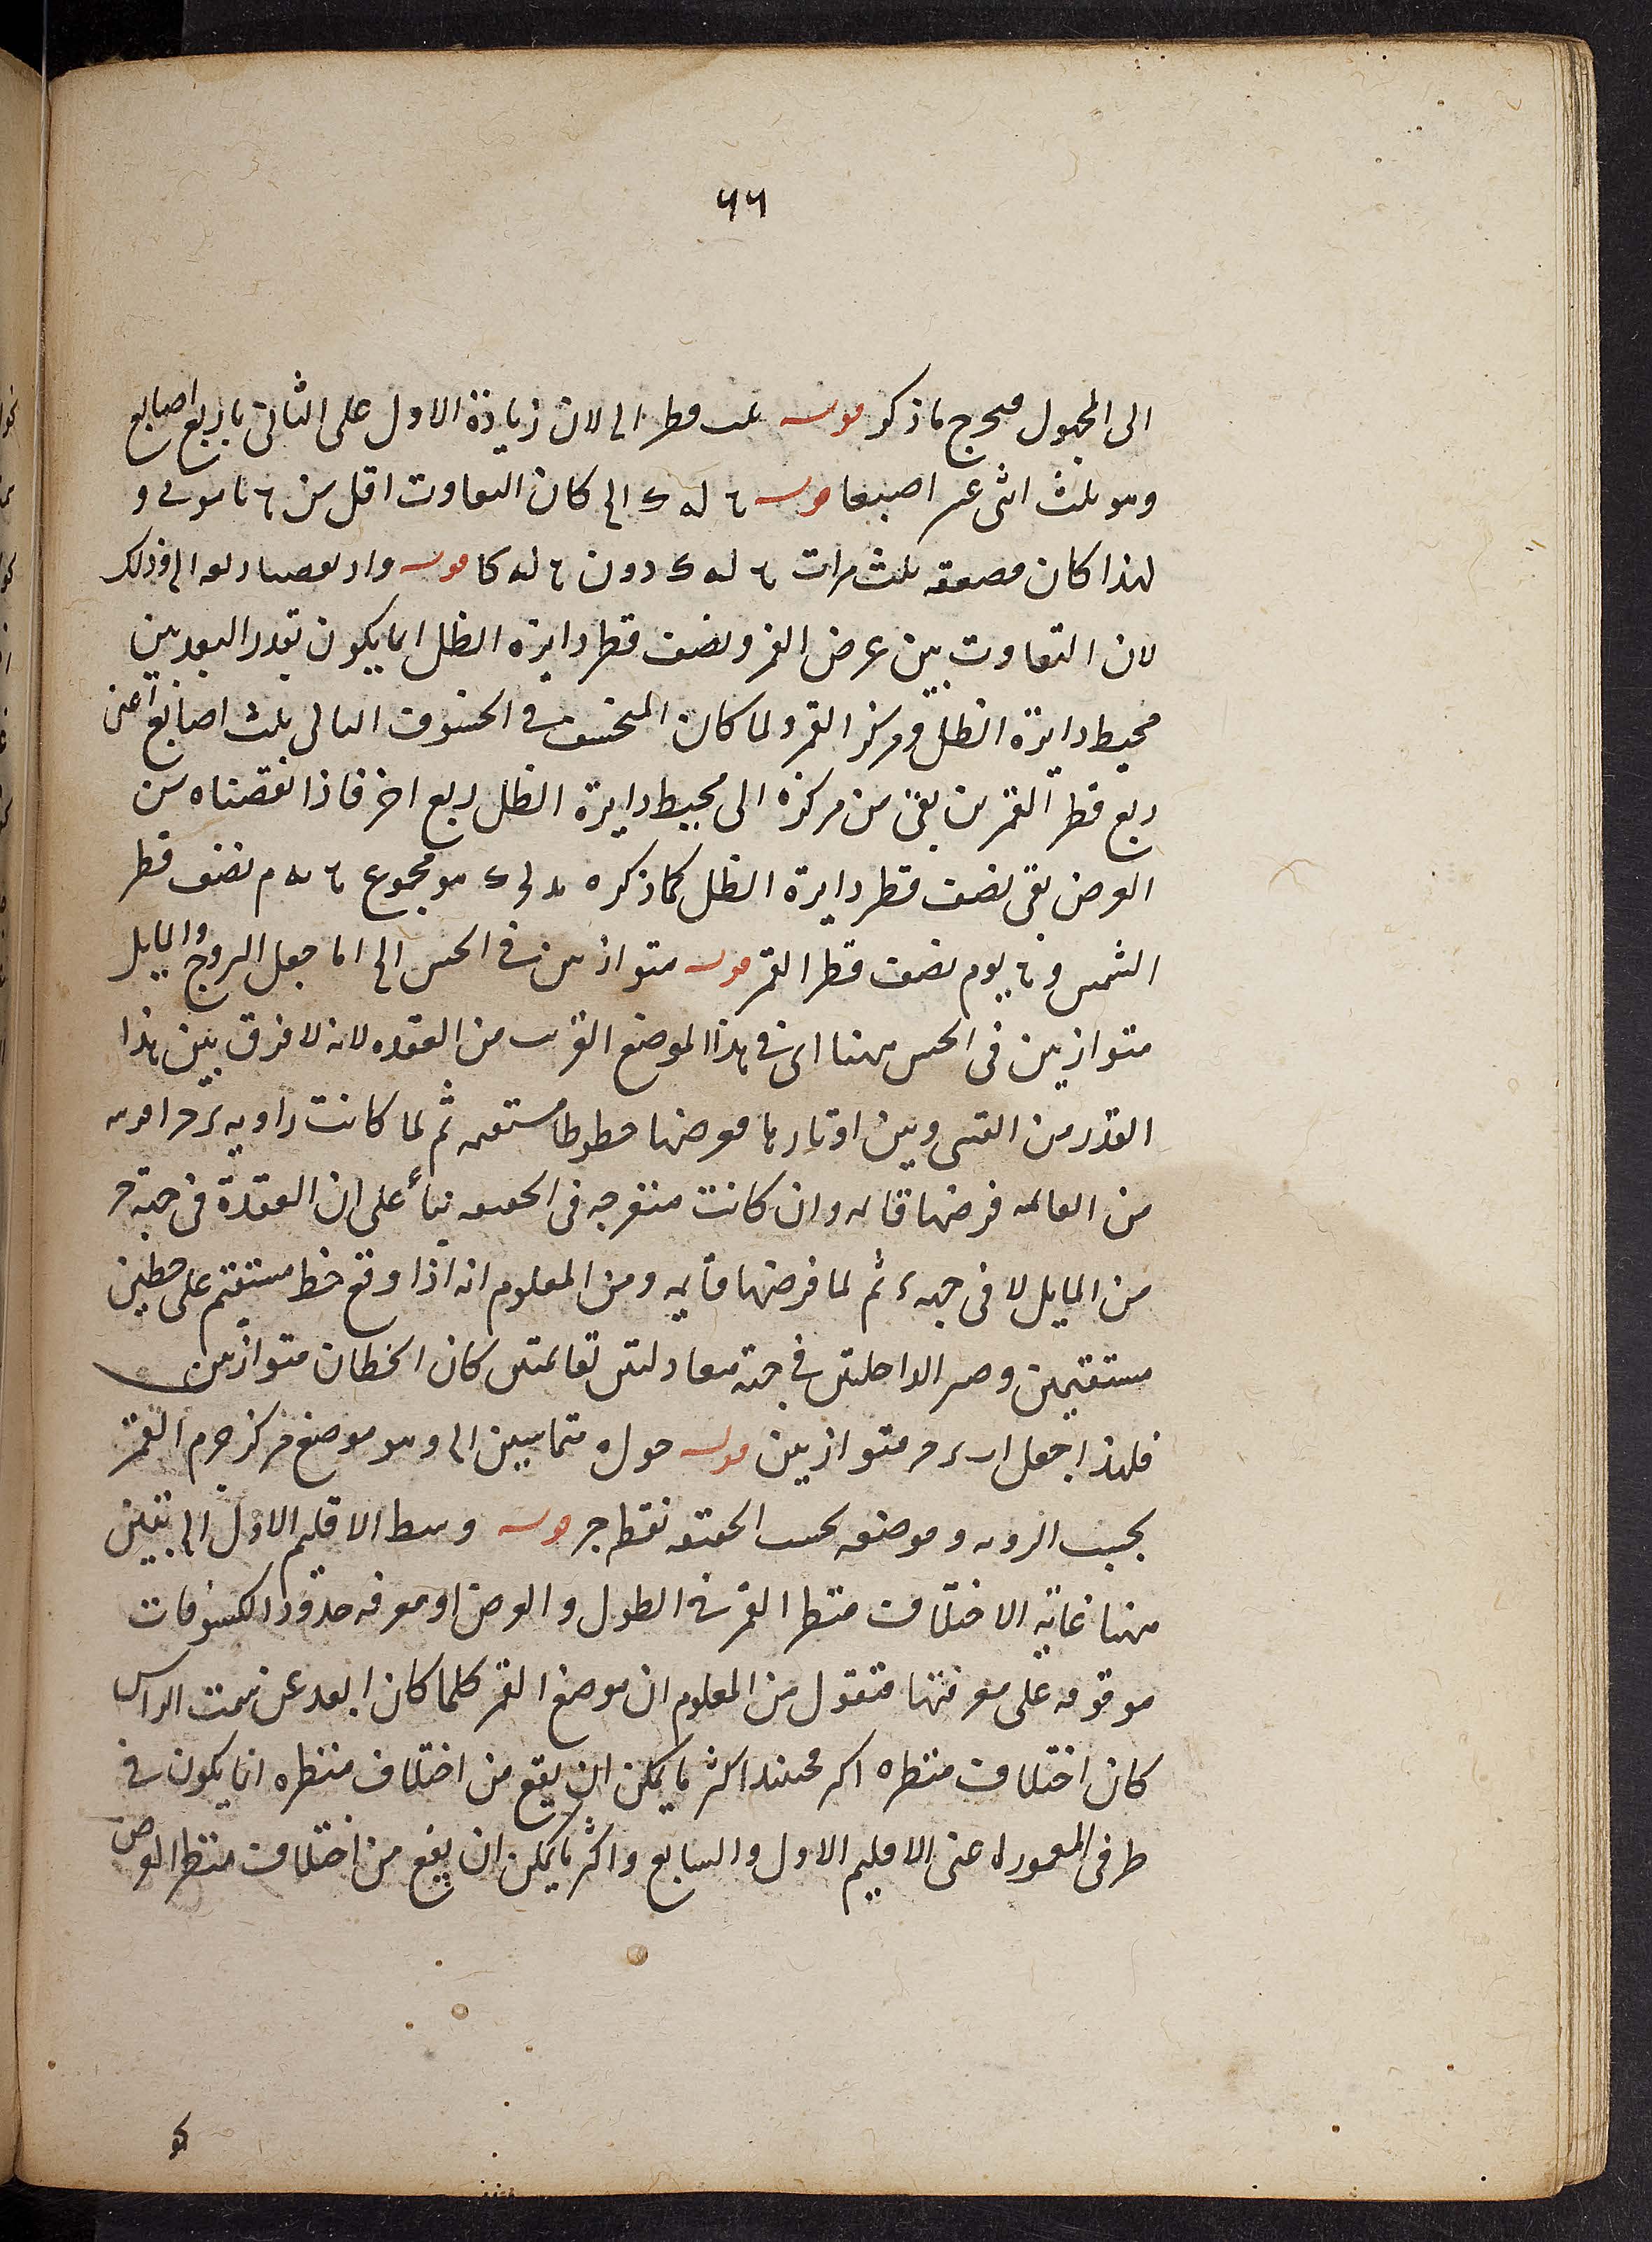 ٦٦
الى المجهول فيخرج ما ذكر قوله ثلث قطر الى لان زيادة الاول على الثانى باربع اصابع
وهو ثلث اثنى عشر اصبعا قوله له ک الى كان التفاوت اقل من و
لهذا كان ضعفه ثلث مرات له ک دون له كا قوله واذ الى وذلك
لان التفاوت بين عرض القمر ونصف قطر دايرة الظل انما يكون بقدر البعد بين
محيط دايرة الظل ومركز القمر ولما كان المنخسف فى الخسوف الثانى ثلث اصابع اعنى
ربع قطر القمر من بقى من مركزه الى محيط دايرة الظل ربع اخر فاذا نقصناه من
العرض بقى نصف قطر دايرة الظل كما ذكره هو مجموع نصف قطر
الشمس و نصف قطر القمر قوله متوازيين فى الحس الى انما جعل البروج والمايل
متوازيين فى الحس ههنا اى فى هذا الموضع القريب من العقده لانه لا فرق بين هذا
القدر من القسى وبين اوتارها فعرضها خطوطا مستقيمه ثم لما كانت زاويه قريبه
من القائمه فرضها قائمه وان كانت منفرجه فى الحقيقه بناء على ان العقدة فى جهة ح
من المايل لا فى جهه ء ثم لما فرضها قايمه ومن المعلوم انه اذا وقع خط مستقيم على خطين
مستقيمين وصير الداخلتين فى جهة معادلتين لقائمتين كان الخطان متوازيين
فلهذا جعل اب ء ح متوازيين قوله حول ه متماسين الى وهو موضع مركز جرم القمر
بحسب الرويه وموضعه بحسب الحقيقه نقطه ح قوله وسط الاقليم الاول الى نبين
ههنا غاية الاختلاف منظر القمر فى الطول والعرض او معرفه حدود الكسوفات
موقوفه على معرفتها فنقول من المعلوم ان موضع القمر كلما كان ابعد عن سمت الراس
كان اختلاف منظره اكثر فحينئذ اكثر ما يمكن ان يقع من اختلاف منظره انما يكون فى
طرفى المعموره اعنى الاقليم الاول والسابع واكثر ما يمكن ان يقع من اختلاف منظر العرض